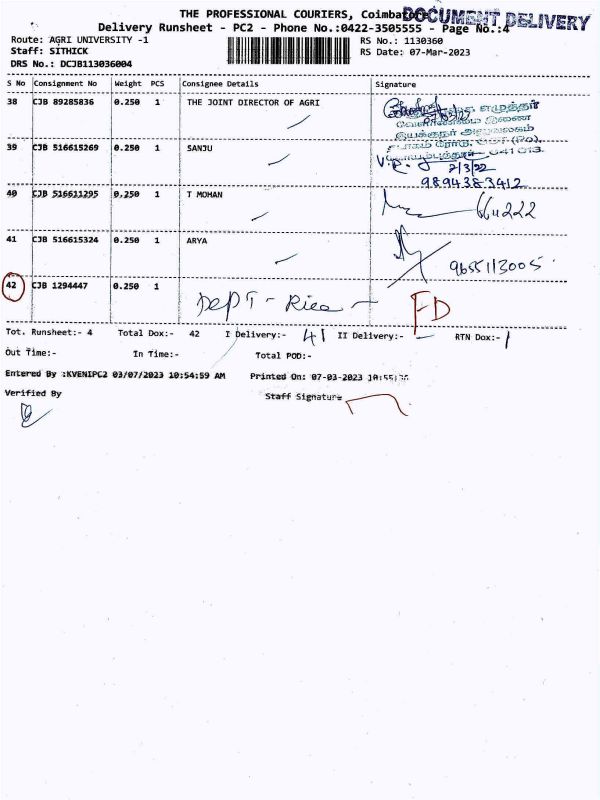 THE PROFESSIONAL COURIERS, Coimbatore
DOCUMENT DELIVERY
Delivery Runsheet - PC2 - Phone No.:0422-3505555 - Page No.:4
Route: AGRI UNIVERSITY -1 RS No.: 1130360
Staff: SITHICK RS Date: 07-Mar-2023
DRS No.: DCJB113036004
S No Consignment No Weight PCS Consignee Details Signature
38 CJB 89285836 0.250 1 THE JOINT DIRECTOR OF AGRI
இயக்குநர் அலுவலகம்
641 013.
39 CJB 516615269 0.250 1 SANJU
7/3/22
9894383412
40 CJB 516611295 0.250 1 T MOHAN
41 CJB 516615324 0.250 1 ARYA
9655113005
42 CJB 1294447 0.250 1 DEPT - Rice - FD
Tot. Runsheet:- 4 Total Dox:- 42 I Delivery:- 41 II Delivery:- - RTN Dox:- 1
Out Time:- In Time:- Total POD:-
Entered By :KVENIPC2 03/07/2023 10:54:59 AM Printed On: 07-03-2023 10:55:36
Verified By Staff Signature